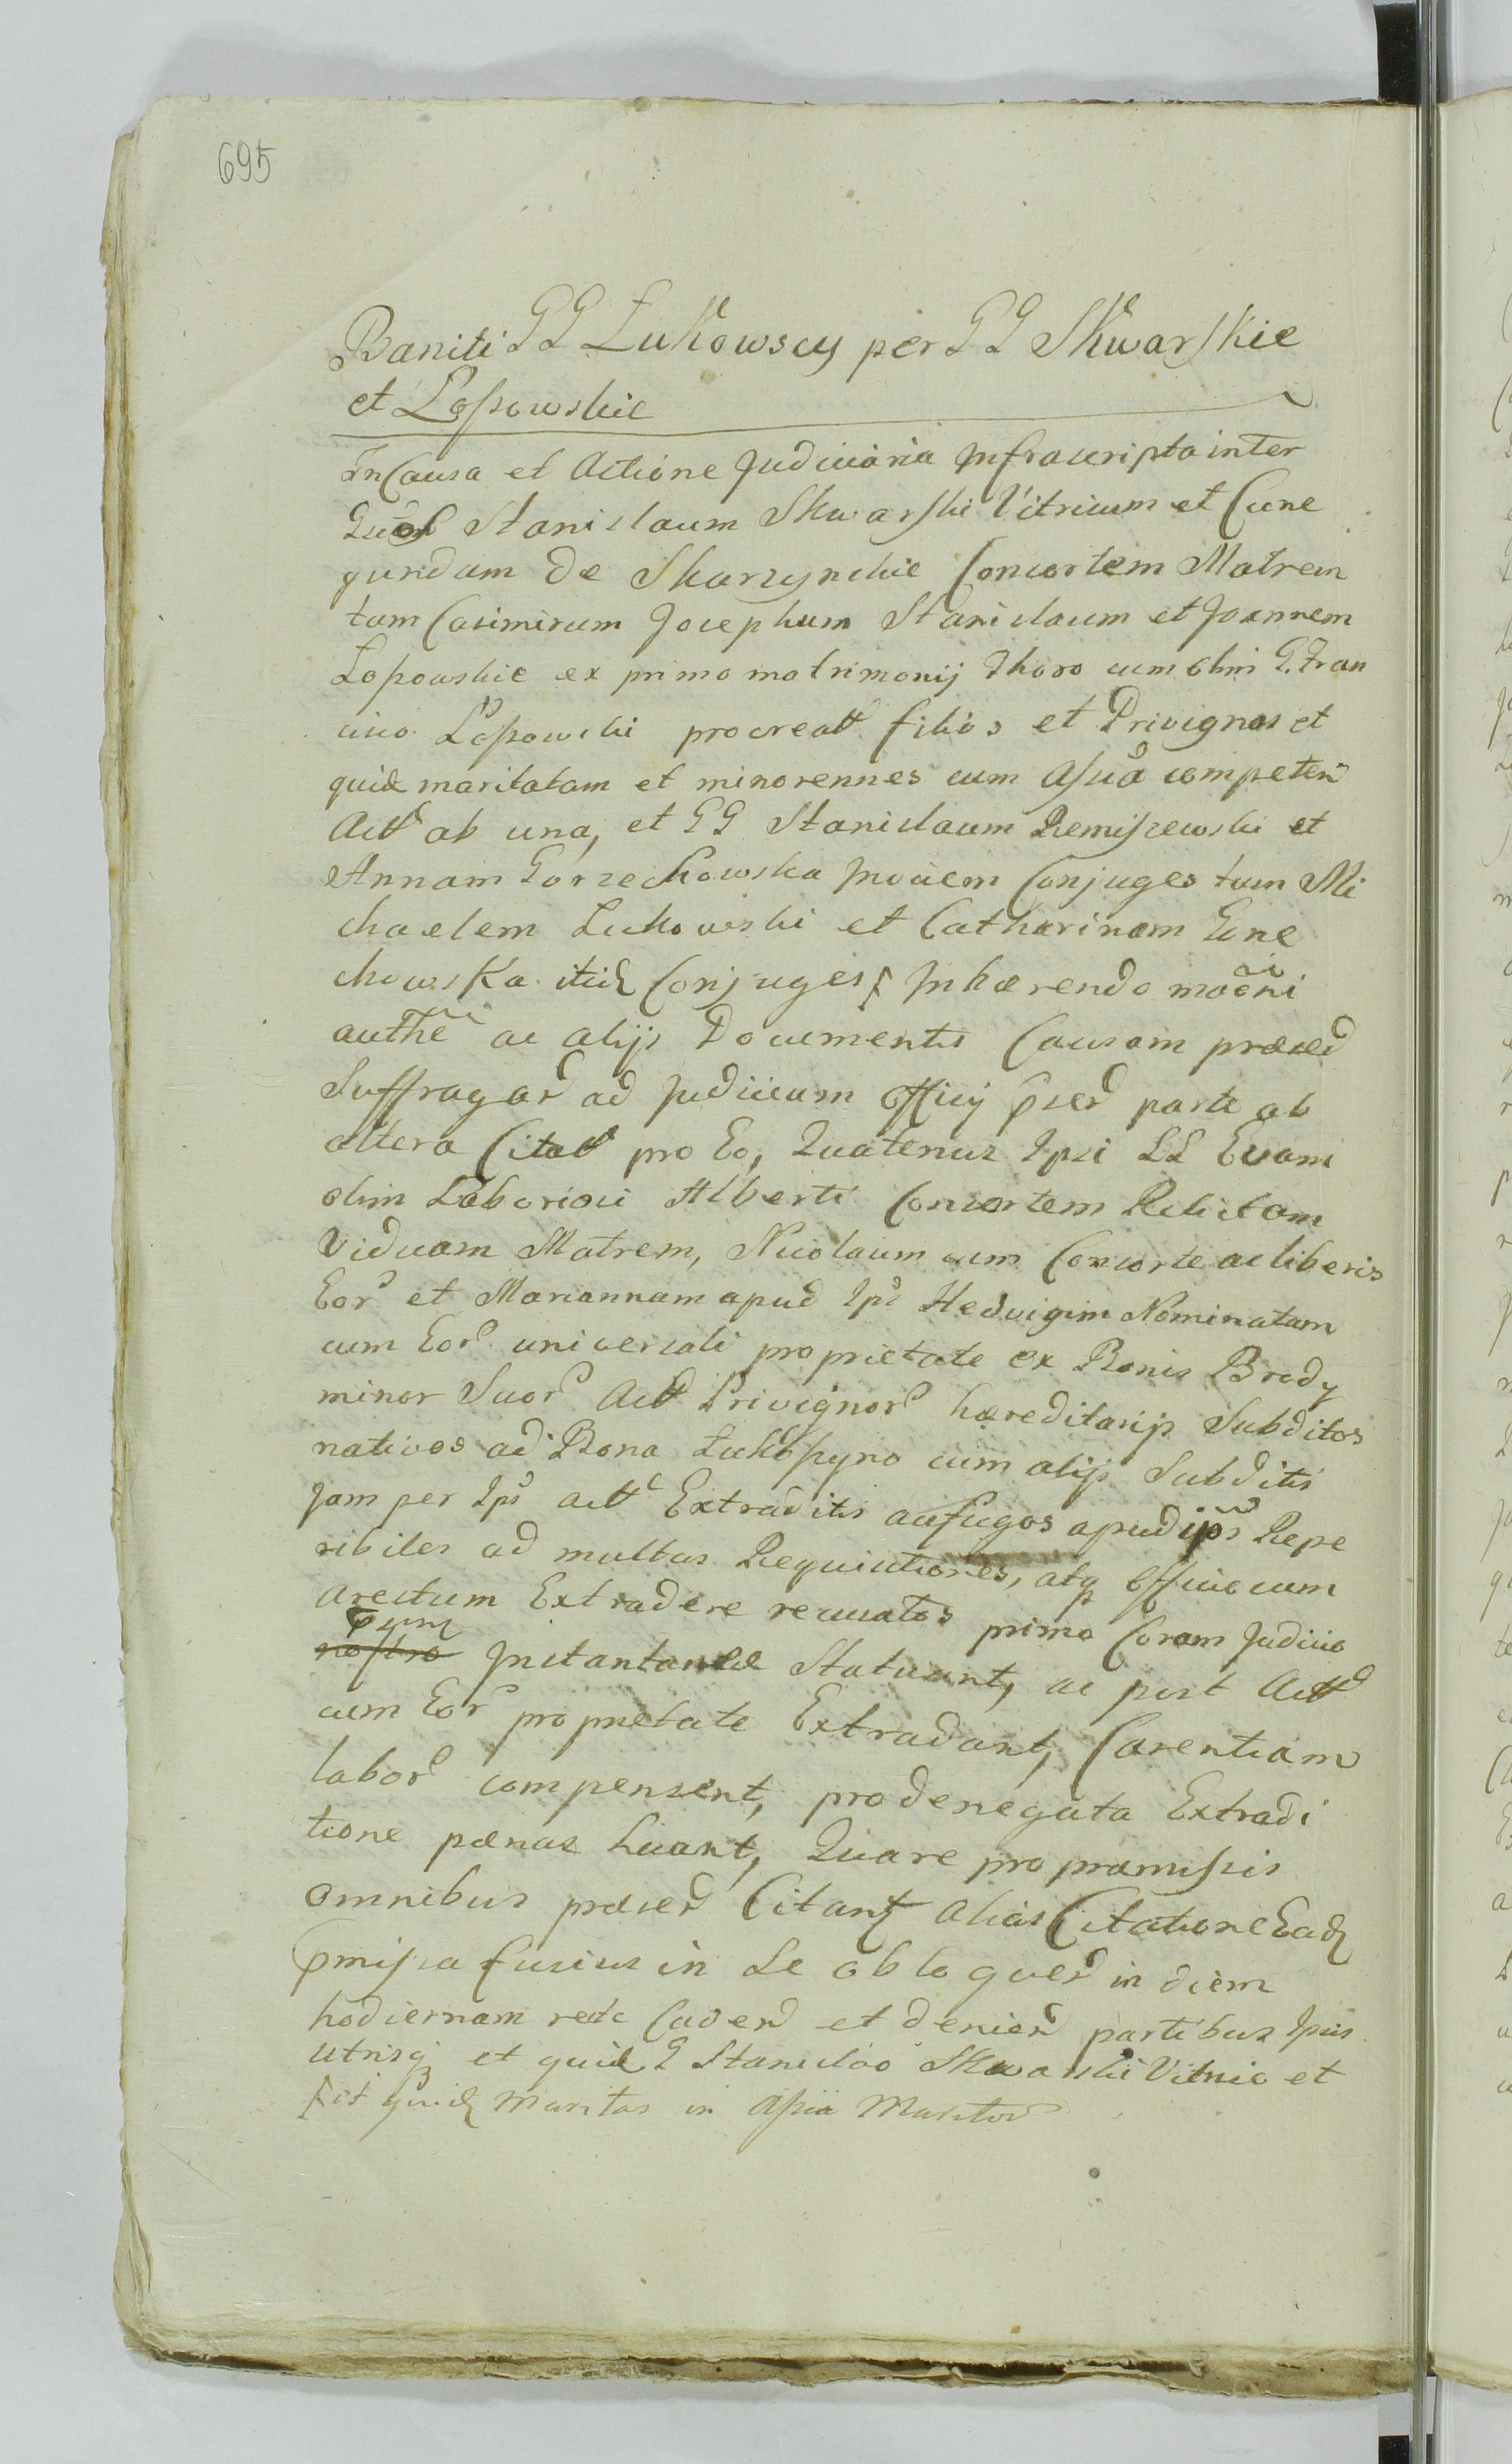 695
Baniti GG Łukowscy per GG Skwarskie
et Łopowskie
In Causa et Actione Judiciaria Infrascripta inter
Stanislaum Skwarski Vitricum et Cune
gundam de Skarzynskie Consortem Matrem
tum Casimirum Josephum Stanislaum et Joannem
Łopowskie ex primo matrimonij thoro cum olim G. Fran
cisco Łopowski procreatt filios et Privignos et
quid maritatam et minorennes cum Assiã competen
Actt ab una, et GG Stanislaum Remiszewski et
Annam Gorzechowska Invicem Conjuges tum Mi
chaelem Łukowski et Catharinam Gorze
chowska itid Conjuges ƒ Inhærendo mãõni
authẽ ac alijs Documentis Causam præsed
Suffragan ad Judicium Officij præsen parte ab
altera Citatt pro Eo, Quatenus Ipsi LL Evam
olim Laboriosi Alberti Consortem Relictam
Viduam Matrem, Nicolaum cum Consorte ac liberis
Eor et Mariannam apud Ips Hedvigim Nominatam
cum Eor universali proprietate ex Bonis Brody
minor Suor Actt Privignor hæreditarijs Subditos
nativos ad Bona Łukopyno cum alijs Subditis
Jam per Ips Actt Extraditis aufugos apud ips Repe
ribiles ad multas Requisitiones, atq officio cum
arestum Extradere recusatos primo Coram Judicio
nostro Instantaneæ Statuant, ac post Actt
cum Eor proprietate Extradant, Carentiam
labor compensent, pro denegata Extradi
tione pænas Luant, Quare pro præmissis
omnibus præsen Citant alias Citatione Eadq
præmissa fusius in Se obloquen in diem
hodiernam recte Caden et devien partibus Ipsis
utrisq et quid G Stanislao Skwarski Vitrico et
ƒ et quidq Maritas in Assiã Maritor